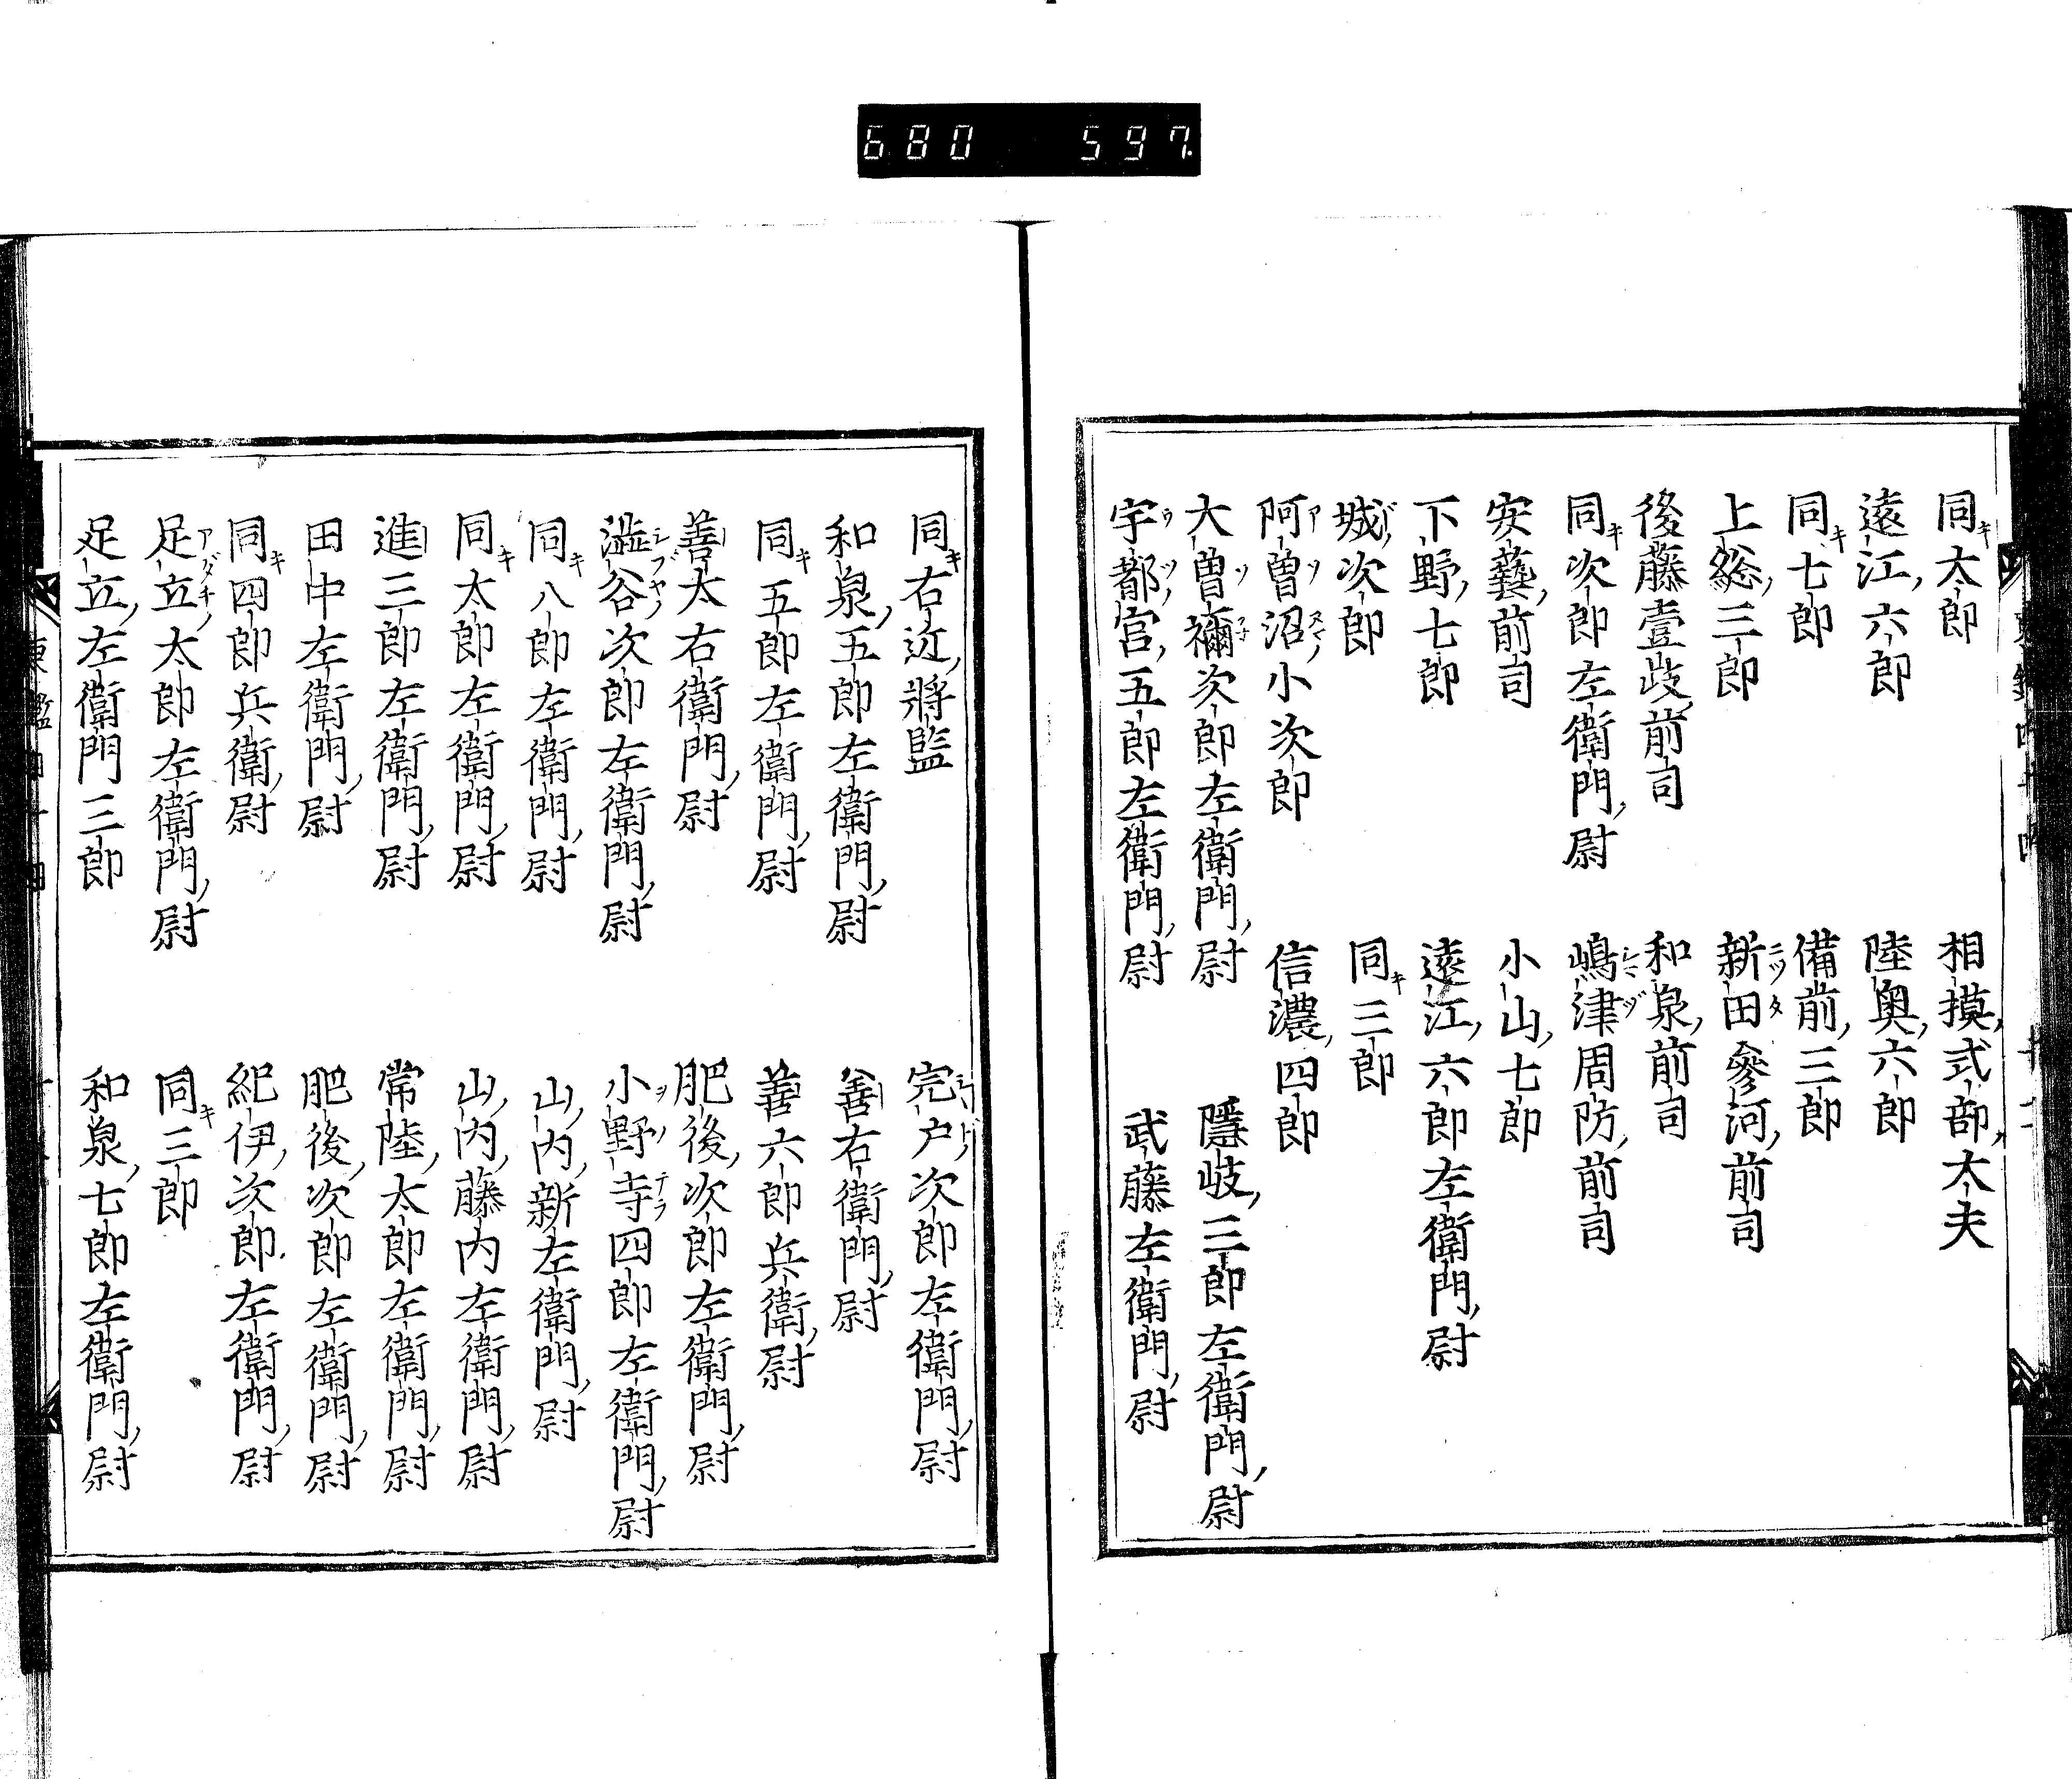 680 597.
同太郎 相摸式部太夫
遠江六郎 陸奥六郎
同七郎 備前三郎
上総三郎 新田參河前司
後藤壹岐前司 和泉前司
同次郎左衛門尉 嶋津周防前司
安藝前司 小山七郎
下野七郎 遠江六郎左衛門尉
城次郎 同三郎
阿曽沼小次郎 信濃四郎
大曽禰次郎左衛門尉 隱岐三郎左衛門尉
宇都宮五郎左衛門尉 武藤左衛門尉
同右近將監 宍户次郎左衛門尉
和泉五郎左衛門尉 善右衛門尉
同五郎左衛門尉 善六郎兵衛尉
善太右衛門尉 肥後次郎左衛門尉
澁谷次郎左衛門尉 小野寺四郎左衛門尉
同八郎左衛門尉 山内新左衛門尉
同太郎左衛門尉 山内藤内左衛門尉
進三郎左衛門尉 常陸太郎左衛門尉
田中左衛門尉 肥後次郎左衛門尉
同四郎兵衛尉 紀伊次郎左衛門尉
足立太郎左衛門尉 同三郎
足立左衛門三郎 和泉七郎左衛門尉